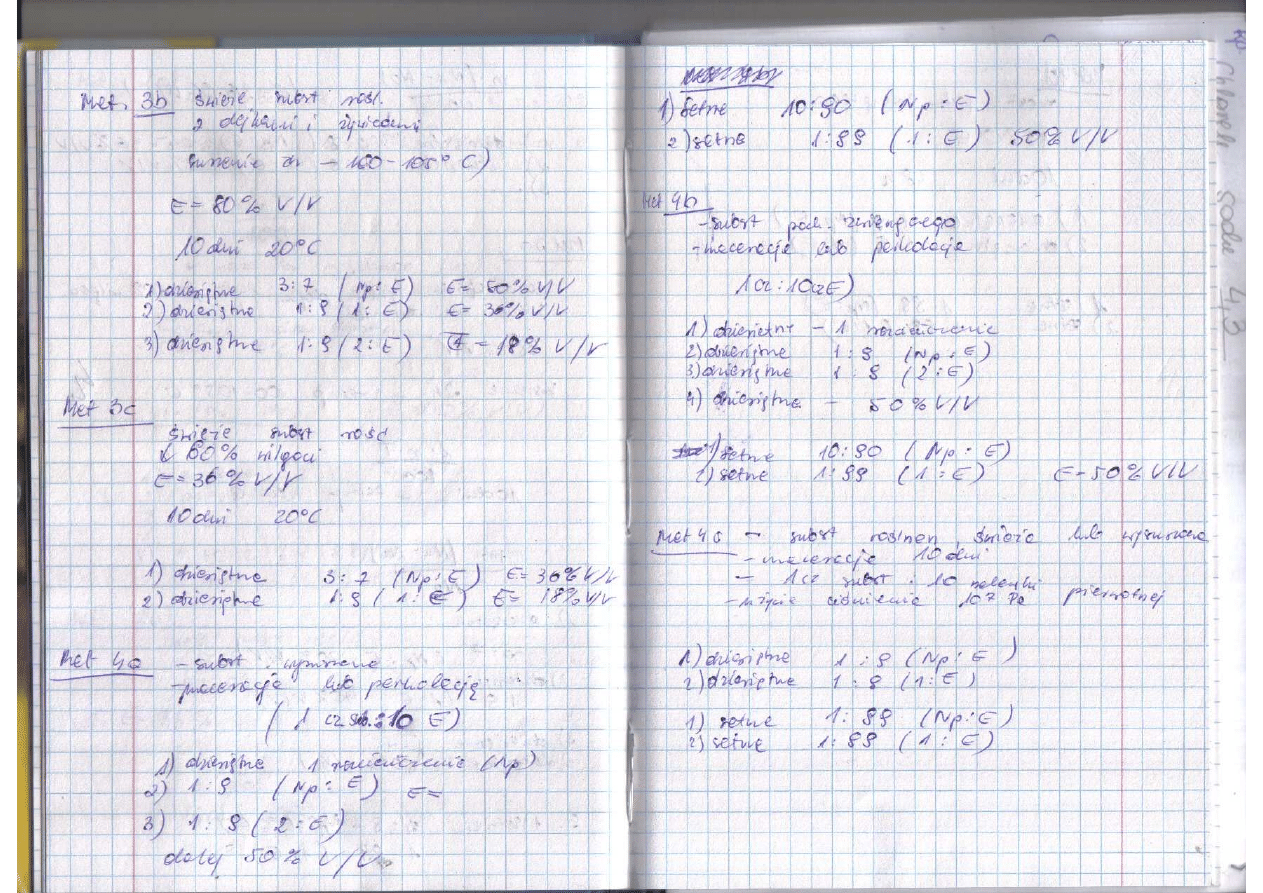 Met. 3b świeże subst rośl.
z olejkami i żywicami
suszenie zn – 100-105° C)
E = 80% V/V
10 dni 20°C
1) dziesiętne 3:7 (Np: E) E = 80% V/V
2) dziesiętne 1:9 (1: E) E = 36% V/V
3) dziesiętne 1:9 (2: E) E = 18% V/V
Met 3c
świeże subst rośl
60% wilgoci
E = 36% V/V
10 dni 20°C
1) dziesiętne 3:7 (Np: E) E = 36% V/V
2) dziesiętne 1:9 (1: E) E = 18% V/V
Met 4a - subst. wysuszone
- maceracja lub perkolacja
(1 cz sub.:10 E)
1) dziesiętne 1 rozcieńczenie (Np)
2) 1:9 (Np: E) E =
3) 1:9 (2: E)
dalej 50% V/V
1) setne 10:90 (Np: E)
2) setne 1:99 (1: E) 50% V/V
Met 4b
- subst poch. zwierzęcego
- maceracja lub perkolacja
1cz:10czE)
1) dziesiętne – 1 rozcieńczenie
2) dziesiętne 1:9 (Np: E)
3) dziesiętne 1:9 (2: E)
4) dziesiętne – 50% V/V
1) setne 10:90 (Np: E)
2) setne 1:99 (1: E) E - 50% V/V
Met 4c – subst roślinna, świeża lub wysuszona
- maceracja 10 dni
- 1cz subst : 10
- użycie ciśnienia 107 Pa pierwotnej
1) dziesiętne 1:9 (Np: E)
2) dziesiętne 1:9 (1: E)
1) setne 1:99 (Np: E)
2) setne 1:99 (1: E)
np Chlorek sodu 4,3